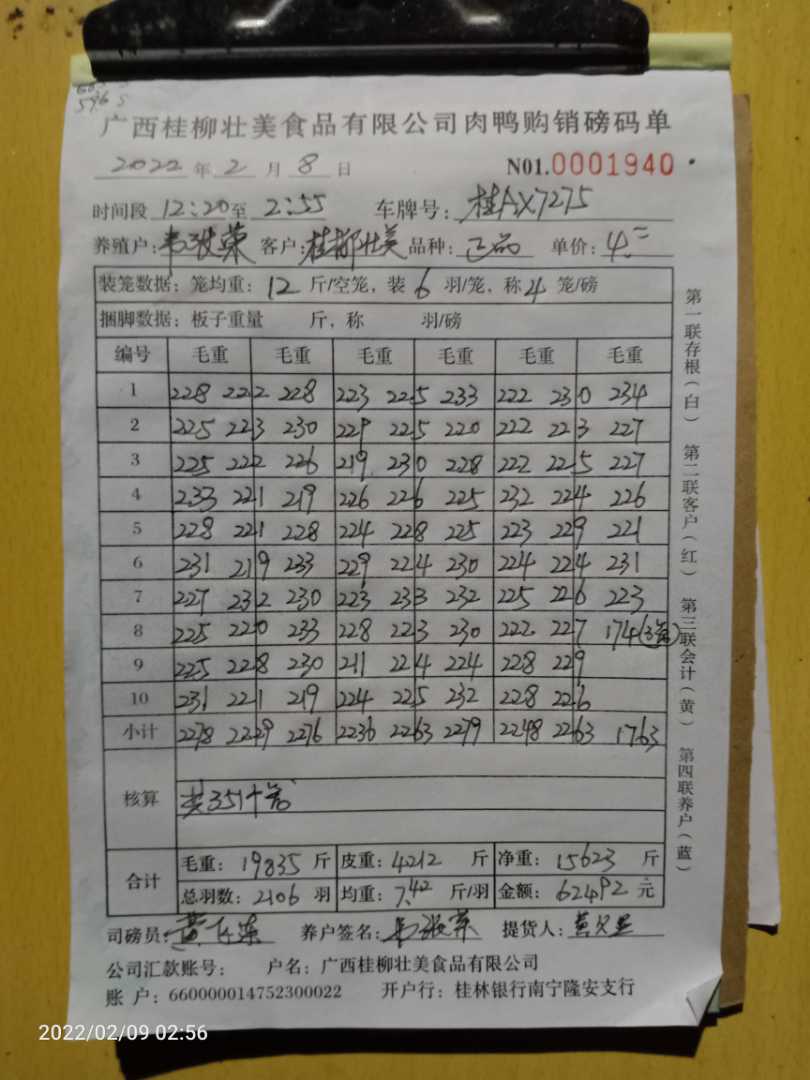 广西桂柳壮美食品有限公司肉鸭购销磅码单
2022年2月8日 N01.0001940
时间段12:20至2:55 车牌号:桂AX7275
养殖户: 客户:桂柳壮美 品种:正品 单价:4.
装笼数据:笼均重:12斤/空笼,装6羽/笼,称4笼/磅
捆脚数据:板子重量 斤,称 羽/磅
编号 毛重 毛重 毛重 毛重 毛重 毛重
1 228 222 228 223 225 233 222 230 234
2 225 223 230 229 225 220 222 223 227
3 225 222 226 219 230 228 222 225 227
4 233 221 219 226 226 225 232 224 226
5 228 221 228 224 228 225 223 229 221
6 231 219 233 229 224 230 224 224 231
7 227 232 230 223 233 232 225 226 223
8 225 220 233 228 223 230 222 227 174(3笼)
9 225 228 230 211 224 224 228 229
10 231 221 219 224 225 232 228 226
小计 2278 2229 2276 2236 2263 2279 2248 2263 1763
核算 共351个笼
合计 毛重:19835斤 皮重:4212斤 净重:15623斤
总羽数:2106羽 均重:7.42斤/羽 金额:62492元
司磅员: 养户签名: 提货人:
公司汇款账号: 户名:广西桂柳壮美食品有限公司
账 户:660000014752300022 开户行:桂林银行南宁隆安支行
第一联存根(白) 第二联客户(红) 第三联会计(黄) 第四联养户(蓝)
2022/02/09 02:56